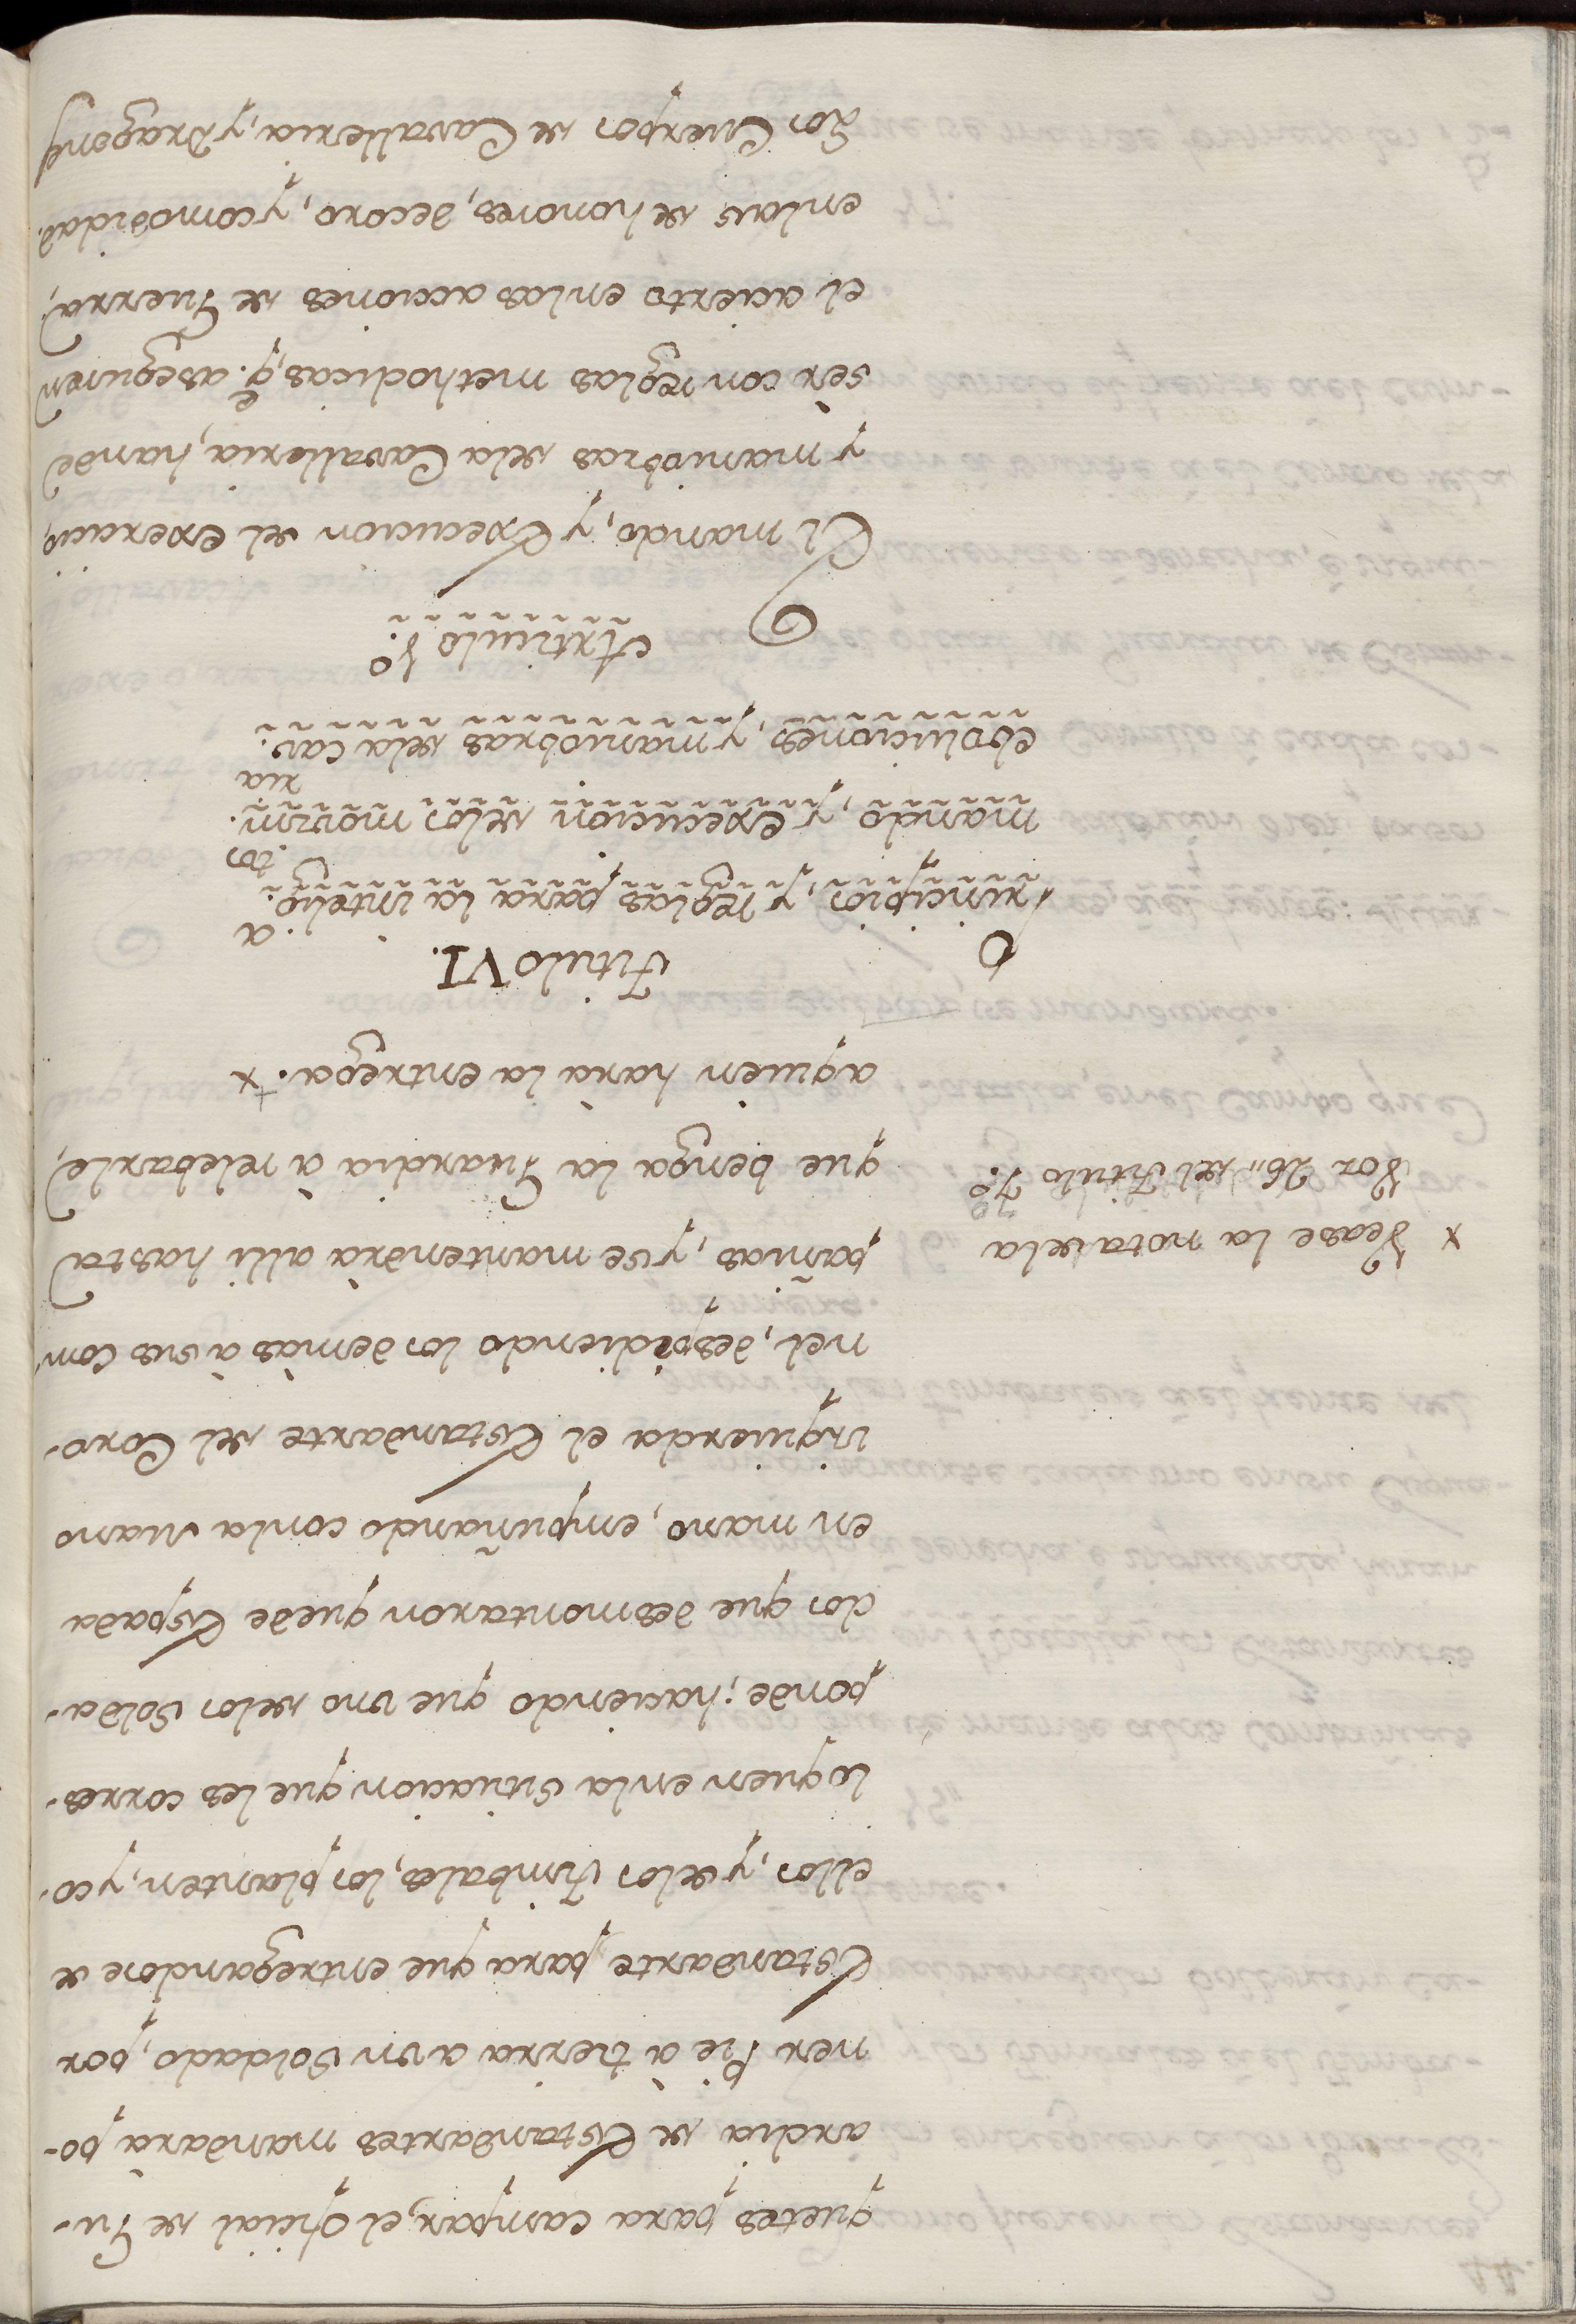 quetes para campar, el oficial de Gu-
ardia de Estandartes mandara po-
ner Pie à tierra a un Soldado, por
Estandarte, para que entregandose de
ellos, y delos Timbales, los planten, y co-
loquen en la situacion que les corres-
ponde; haciendo que uno delos Solda-
dos que desmontaron quede Espada
en mano, empuñando con la Mano
izquierda el Estandarte del Coro-
nel, despidiendo los demàs à sus Com
pañias, y se mantendrà alli hasta
que benga la Guardia à relebarle,
aquien harà la entrega. x
x Vease la nota dela
Vor 26,, del Titulo 7º
Titulo VI.
Principios, y reglas para la intelig.ª
mando, y execucion delos movim.tos
evoluciones, y maniobras dela cav.ria
Articulo 1º
El mando, y Execucion del exercicio,
y maniobras dela Cavalleria, han de
sèr con reglas methodicas, q.e aseguren
el acierto en las acciones de Guerra,
en las de honores, decoro, y comodidad.
Los Cuerpos de Cavalleria, y Dragones